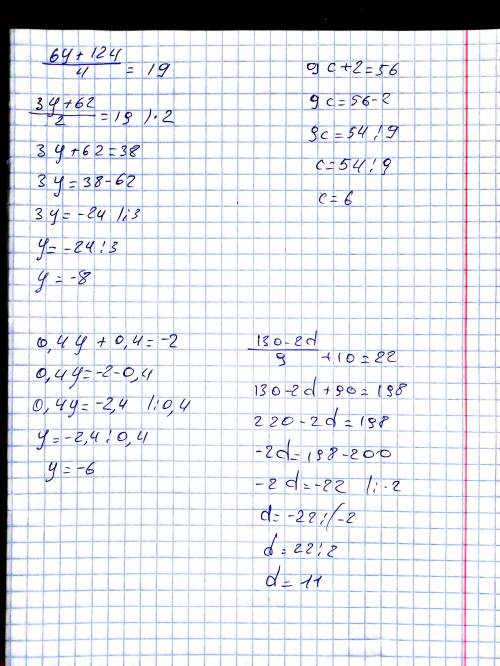 6y + 124
4 = 19
3y+62
2 = 19 /·2
3y+62=38
3y=38-62
3y=-24 /:3
y=-24:3
y=-8
9c+2=56
9c=56-2
9c=54:9
c=54:9
c=6
0,4y+0,4=-2
0,4y=-2-0,4
0,4y=-2,4 /:0,4
y=-2,4:0,4
y=-6
130-2d
9 +10=22
130-2d+90=198
220-2d=198
-2d=198-200
-2d=-22 /:-2
d=-22:(-2
d=22:2
d=11